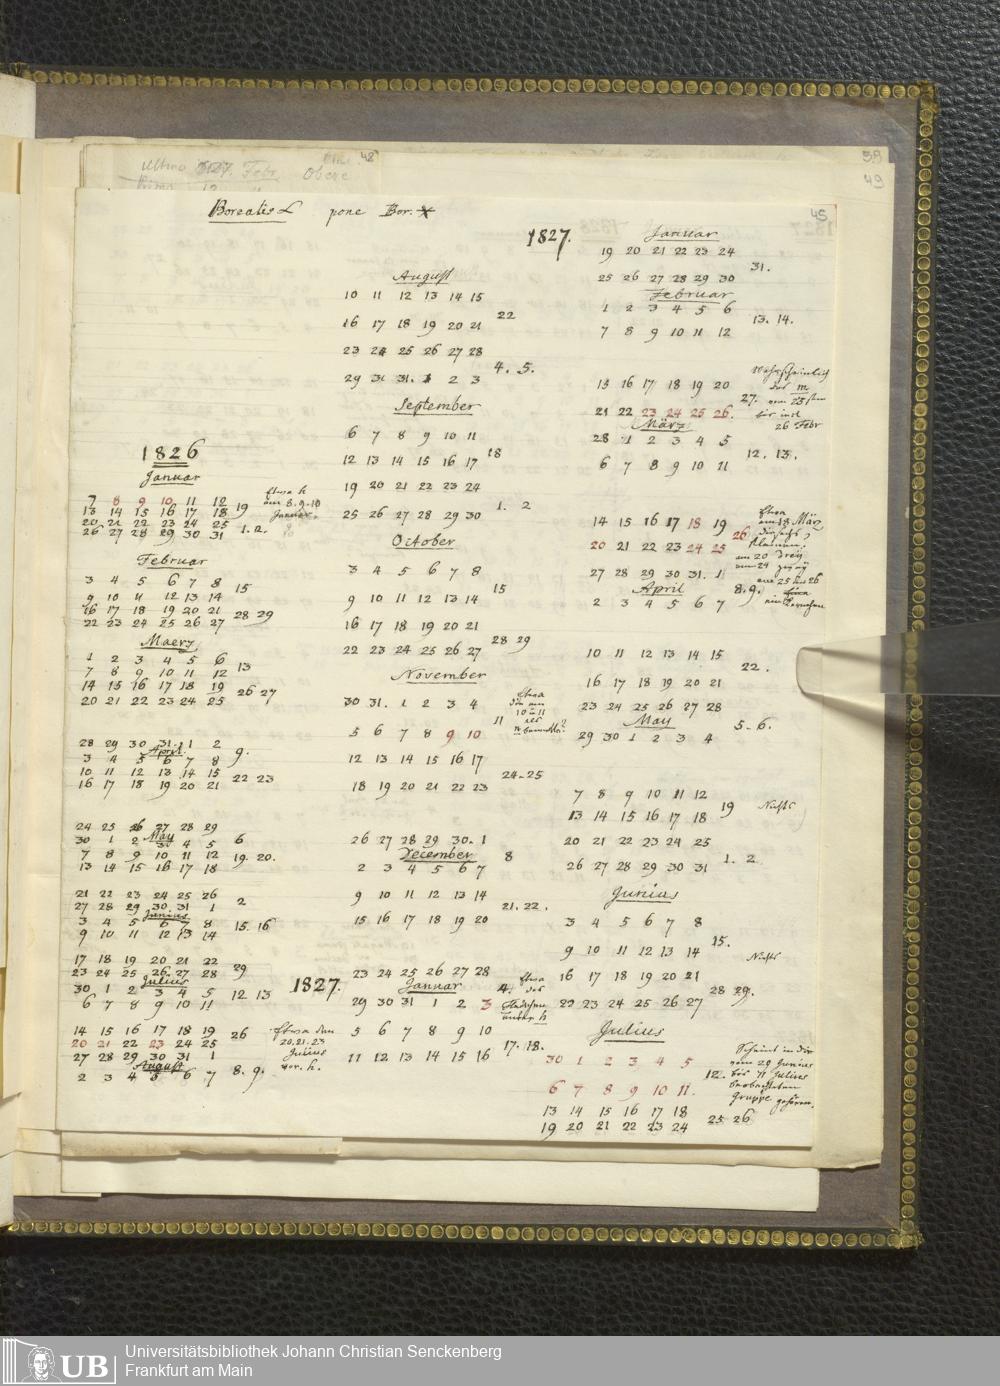 48
58
49
45
Ultimo 1827. Febr. obere
Borealis L pone Bor. X
1826
Januar
7 8 9 10 11 12
13 14 15 16 17 18 19
20 21 22 23 24 25
26 27 28 29 30 31 1. 2.
Etwa h
am 8. 9. 10
Januar.
Februar
3 4 5 6 7 8
9 10 11 12 13 14 15
16 17 18 19 20 21
22 23 24 25 26 27 28 29
Maerz
1 2 3 4 5 6
7 8 9 10 11 12 13
14 15 16 17 18 19
20 21 22 23 24 25 26 27
28 29 30 31. 1 2
April
3 4 5 6 7 8 9.
10 11 12 13 14 15
16 17 18 19 20 21 22 23
24 25 26 27 28 29
May
30 1 2 3 4 5 6
7 8 9 10 11 12
13 14 15 16 17 18 19. 20.
21 22 23 24 25 26
27 28 29 30 31 1 2
Junius
3 4 5 6 7 8
9 10 11 12 13 14 15. 16
17 18 19 20 21 22
23 24 25 26 27 28 29
Julius
30 1 2 3 4 5
6 7 8 9 10 11 12 13
14 15 16 17 18 19
20 21 22 23 24 25 26
27 28 29 30 31 1
August
2 3 4 5 6 7 8. 9.
Etwa den
20. 21. 23
Julius
vor. h.
August
10 11 12 13 14 15
16 17 18 19 20 21 22
23 24 25 26 27 28
29 31. 2 3 4. 5.
September
6 7 8 9 10 11
12 13 14 15 16 17 18
19 20 21 22 23 24
25 26 27 28 29 30 1. 2
October
3 4 5 6 7 8
9 10 11 12 13 14 15
16 17 18 19 20 21
22 23 24 25 26 27 28 29
November
30 31. 1 2 3 4
5 6 7 8 9 10 11
Etwa
den am
10 u 11
12 13 14 15 16 17
18 19 20 21 22 23 24-25
26 27 28 29 30. 1
December
2 3 4 5 6 7 8
9 10 11 12 13 14
15 16 17 18 19 20 21. 22.
23 24 25 26 27 28
1827.
Januar
29 30 31 1 2 3 4.
Etwa
das
Fläschen
unter h
5 6 7 8 9 10
11 12 13 14 15 16 17. 18.
1827.
Januar
19 20 21 22 23 24
25 26 27 28 29 30 31.
Februar
1 2 3 4 5 6
7 8 9 10 11 12 13. 14.
15 16 17 18 19 20
21 22 23 24 25 26. 27.
Wahrscheinlich
der m
vom 23sten
bis incl
26 Febr
März
28 1 2 3 4 5
6 7 8 9 10 11 12. 13.
14 15 16 17 18 19
20 21 22 23 24 25 26
Etwa
am 18 März
am 20 drey
am 24
am 25 und 26
27 28 29 30 31. 1
April
2 3 4 5 6 7 8. 9.
10 11 12 13 14 15
16 17 18 19 20 21 22.
23 24 25 26 27 28
May
29 30 1 2 3 4 5. 6.
7 8 9 10 11 12
13 14 15 16 17 18 19
Nichts
20 21 22 23 24 25
26 27 28 29 30 31 1. 2
Junius
3 4 5 6 7 8
9 10 11 12 13 14 15.
Nichts
16 17 18 19 20 21
22 23 24 25 26 27 28 29.
Julius
30 1 2 3 4 5
6 7 8 9 10 11. 12.
Scheint in die
vom 29 Junius
bis 11 Julius
beobachteten
Gruppe gehören.
13 14 15 16 17 18
19 20 21 22 23 24 25 26
UB
Universitätsbibliothek Johann Christian Senckenberg
Frankfurt am Main